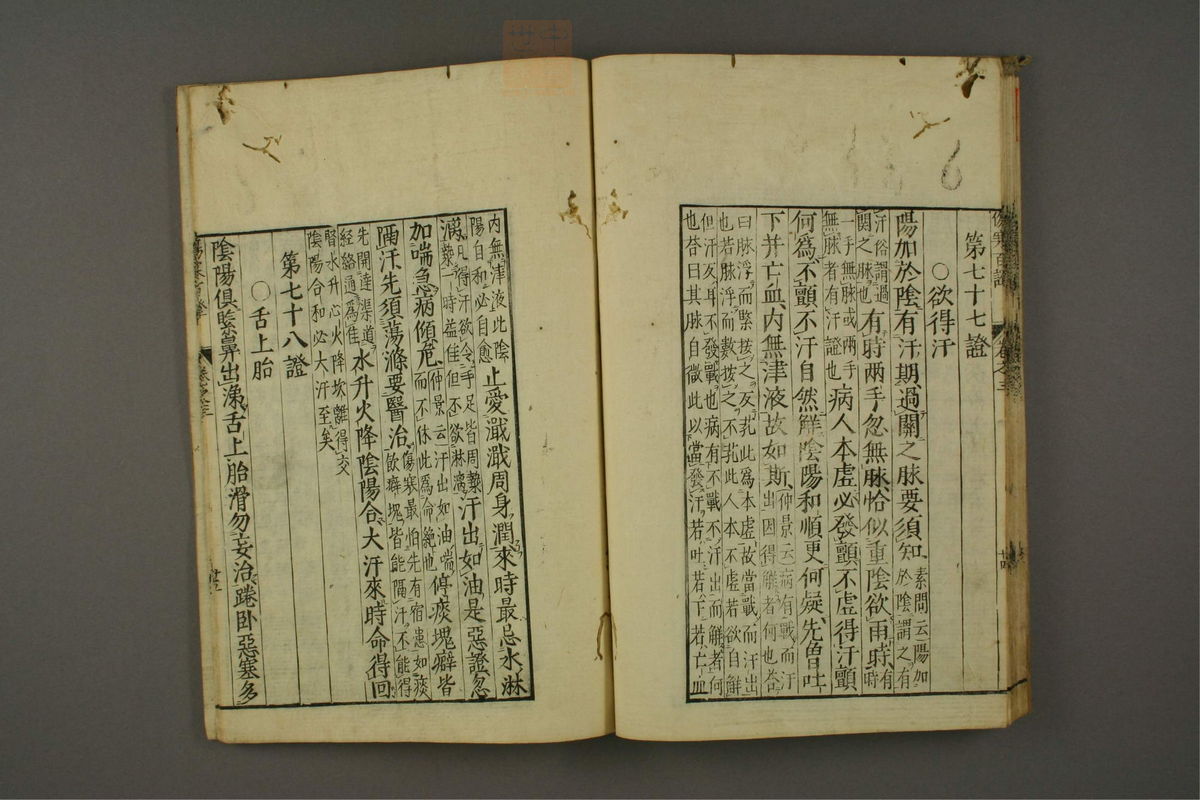 第七十七證
○欲得汗
陽加於陰有汗期過關之脉要須知素問云陽加於陰謂之有
汗俗謂過關之脉也有時两手忽無脉恰似重陰欲雨時有時
一手無脉或两手無脉者有汗證也病人本虚必發顫不虚得汗顫
何爲不顫不汗自然解陰陽和順更何疑先曾吐
下并亡血内無津液故如斯仲景云病有戰而汗出因得解者何也荅
曰脉浮而緊按之反芤此爲本虚故當戰而汗出
也若脉浮而數按之不芤此人本不虚若欲自解
但汗反耳不發戰也病有不戰不汗出而解者何
也荅曰其脉自微此以當發汗若吐若下若亡血
内無津液此陰陽自和必自愈止愛濈濈周身潤來時最忌水淋
漓凡得汗欲令手足皆周漐漐一時益佳但不欲淋漓汗出如油是惡證忽
加喘急病傾危仲景云汗出如油喘而不休此爲命絶也停痰塊癖皆
隔汗先須蕩滌要醫治傷寒最怕先有宿患如痰飲癖塊皆能隔汗不能得
先開達渠道經絡通爲佳水升火降陰陽合大汗來時命得回
腎水升心火降坎離得交
陰陽合和必大汗至矣
第七十八證
○舌上胎
陰陽俱緊鼻出涕舌上胎滑勿妄治踡卧惡寒多